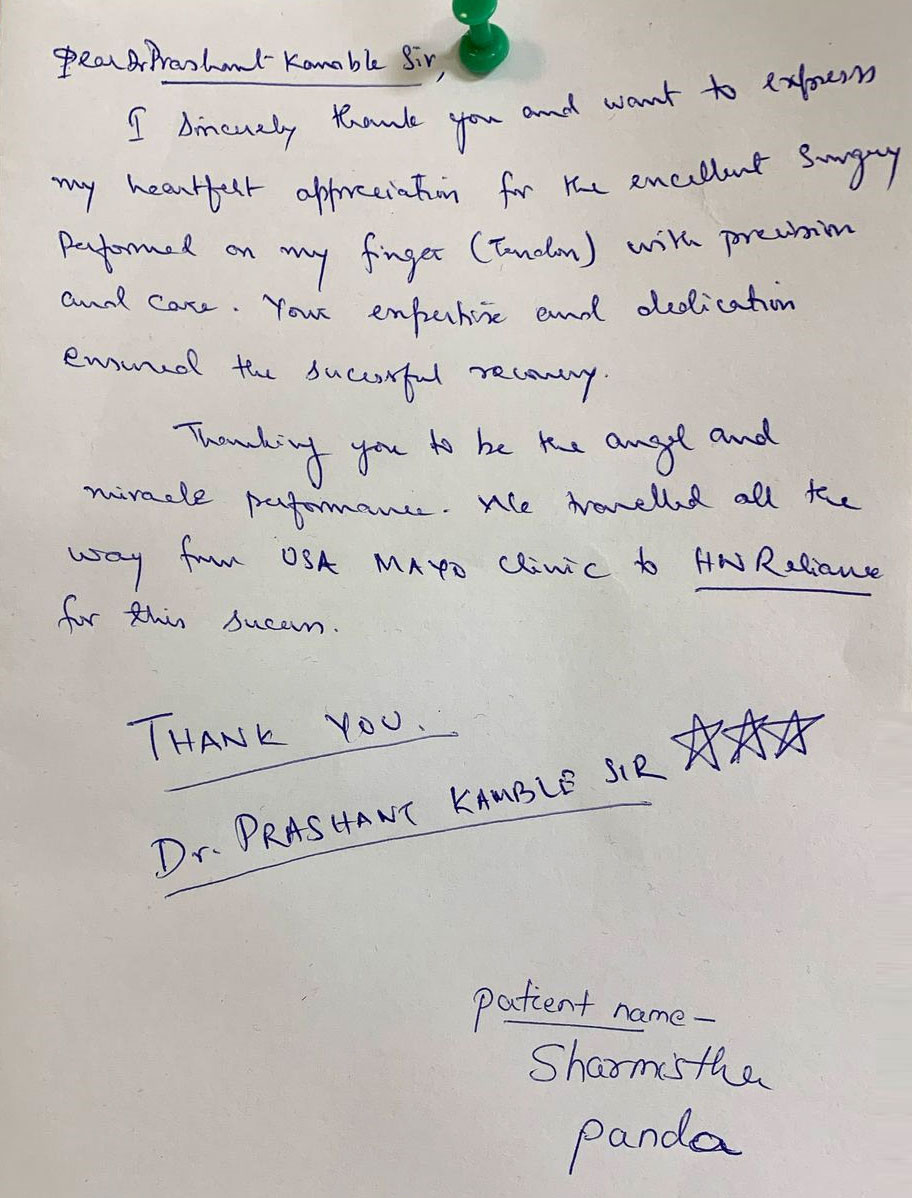 Dear Dr Prashant Kamble Sir,
I sincerely thank you and want to express
my heartfelt appreciation for the excellent Surgery
Performed on my finger (Tendon) with precision
and care. Your expertise and dedication
ensured the sucessful recovery.
Thanking you to be the angel and
miracle performance. We travelled all the
way from USA MAYO Clinic to HN Reliance
for this sucess.
THANK YOU.
Dr. PRASHANT KAMBLE SIR ☆☆☆
patient name –
Sharmistha
panda